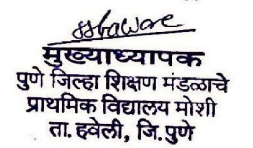 मुख्याध्यापक
पुणे जिल्हा शिक्षण मंडळाचे
प्राथमिक विद्यालय मोशी
ता. हवेली, जि.पुणे